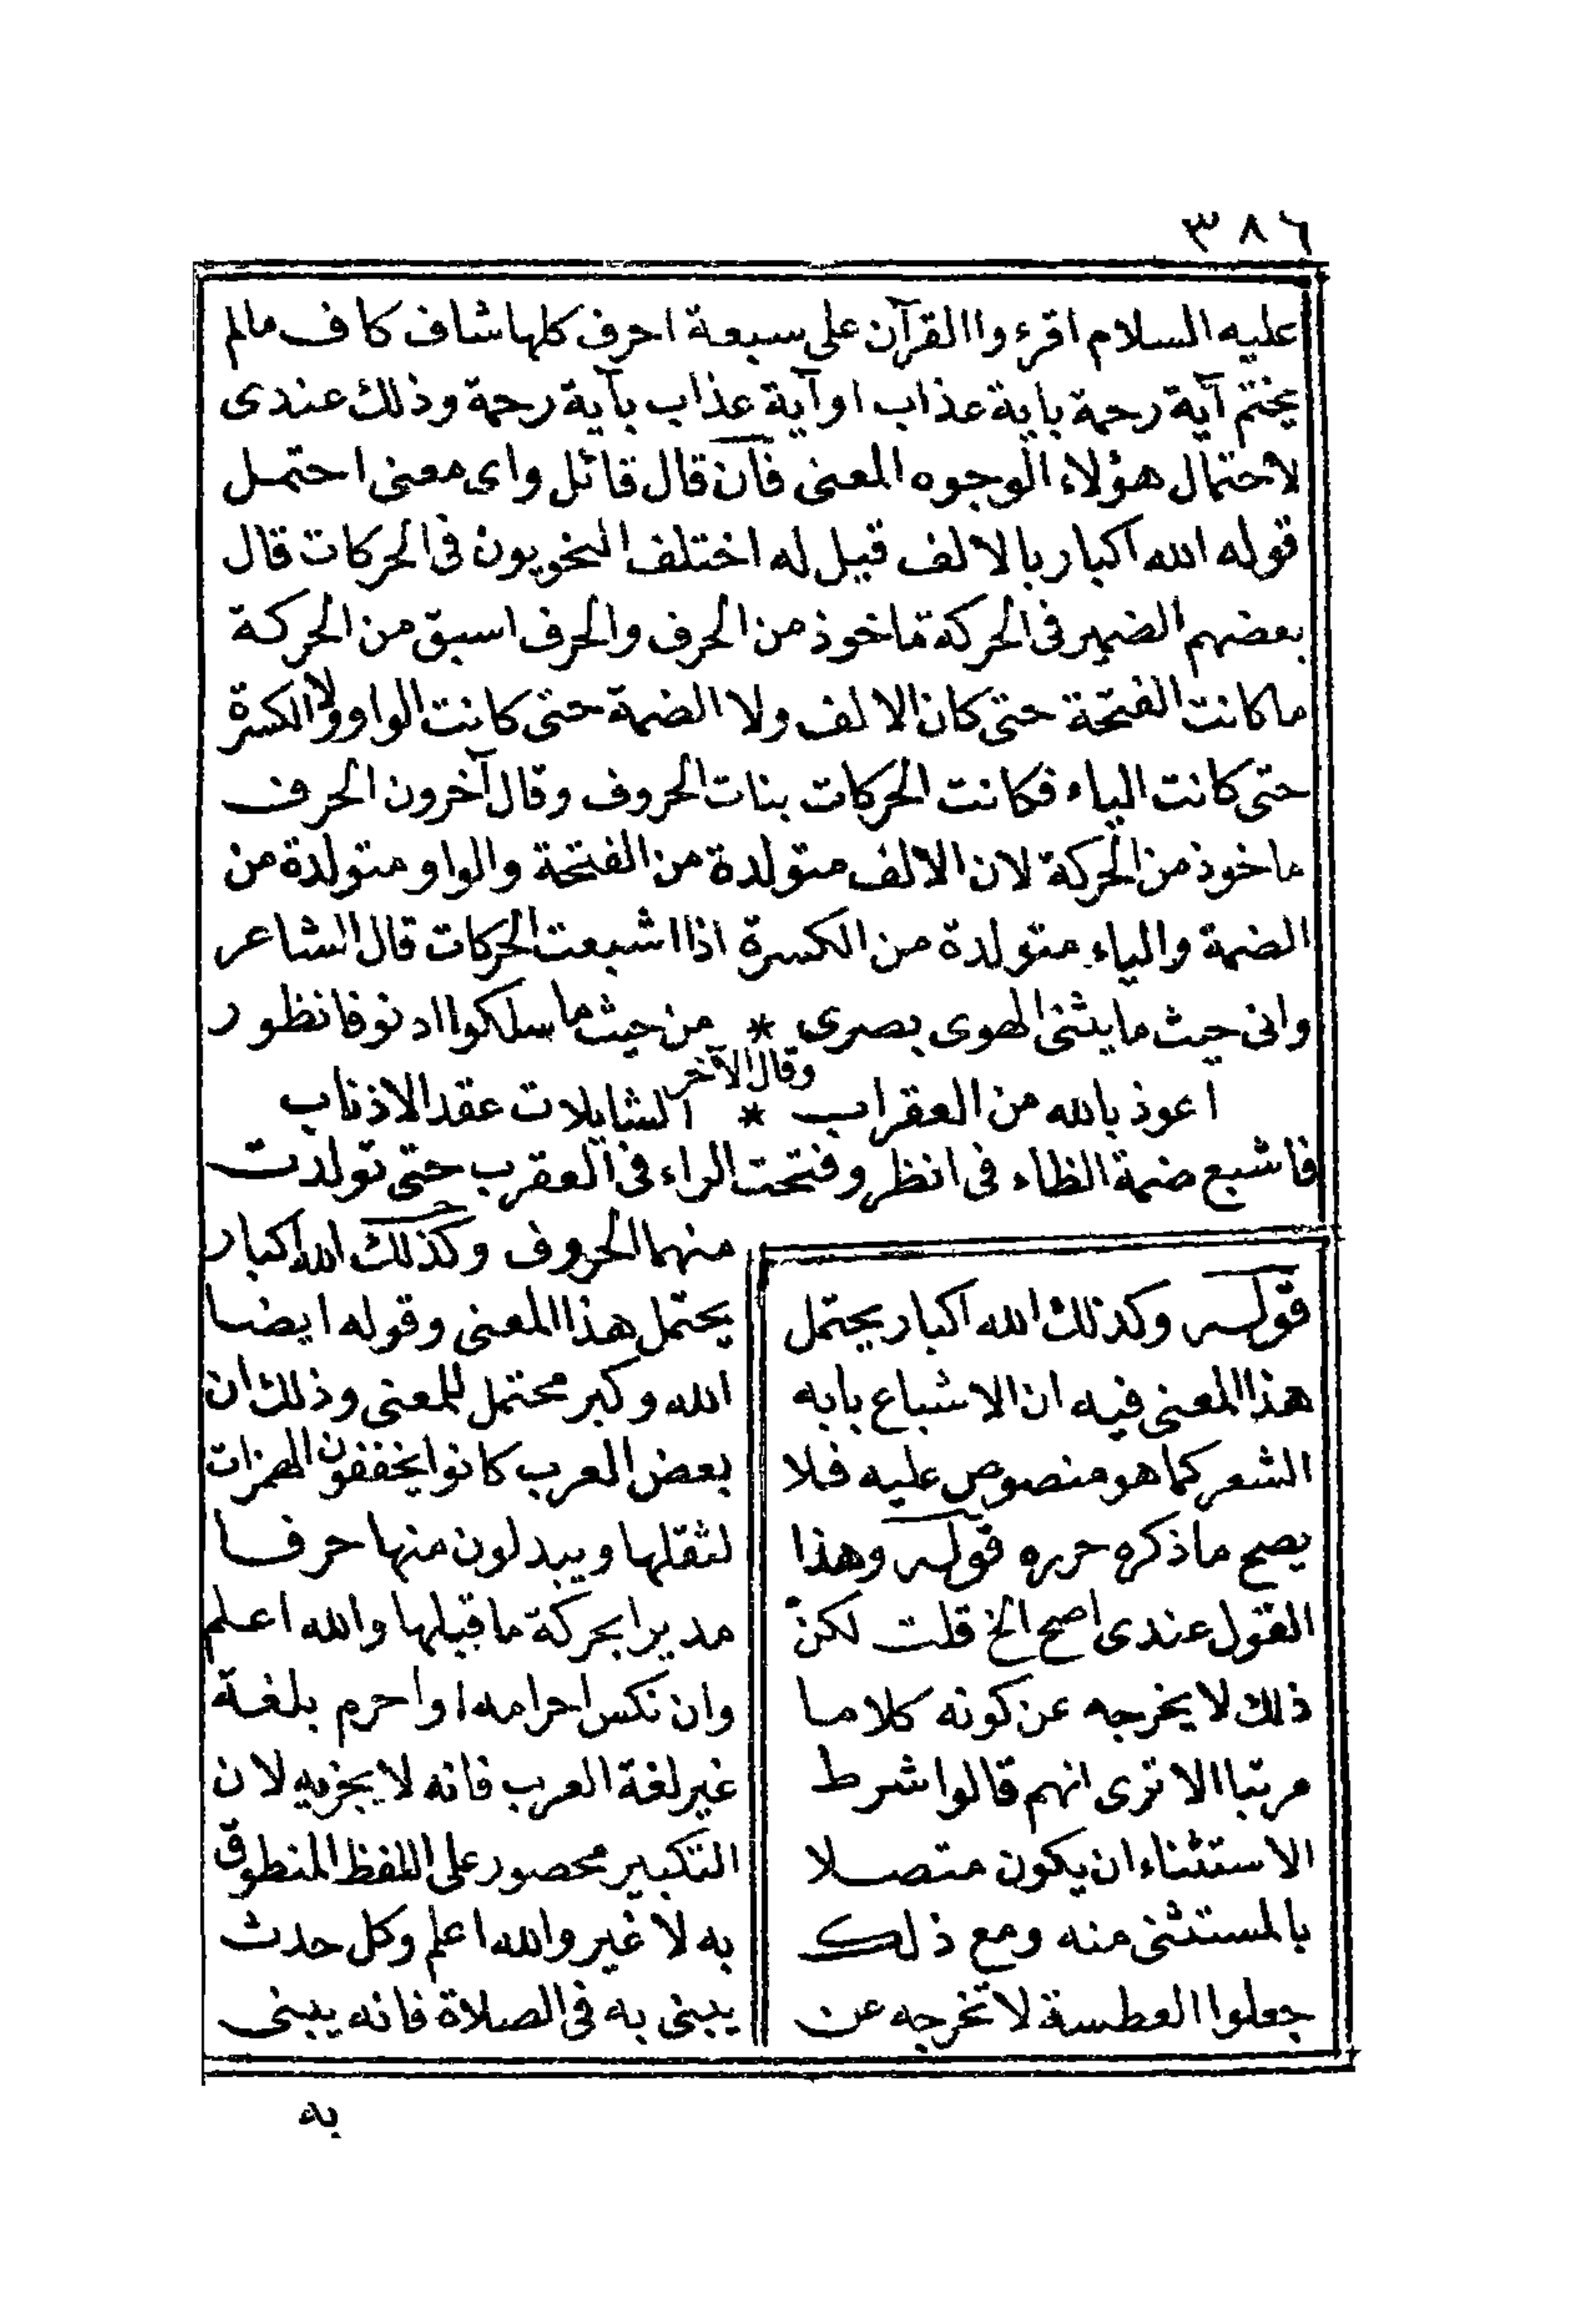 ٣٨٦
عليه السلام اقرءوا القرآن على سبعة احرف كلها شاف كاف مالم
يختم آية رحمة باية عذاب او آية عذاب بآية رحمة وذلك عندى
لاحتمال هؤلاء الوجوه المعنى فان قال قائل واى معنى احتمل
قوله الله اكبار بالالف قيل له اختلف النحويون فى الحركات قال
بعضهم الضمير فى الحركة ماخوذ من الحرف والحرف اسبق من الحركة
ما كانت الفتحة حتى كان الالف ولا الضمة حتى كانت الواو ولا الكسرة
حتى كانت الياء فكانت الحركات بنات الحروف وقال آخرون الحرف
ماخوذ من الحركة لان الالف متولدة من الفتحة والواو متولدة من
الضمة والياء متولدة من الكسرة اذا اشبعت الحركات قال الشاعر
وانى حيث ما يثنى الهوى بصرى * من حيث ما سلكوا ادنو فانظور
وقال الآخر
اعوذ بالله من العقراب * الشايلات عقد الاذناب
فاشبع ضمة الظاء فى انظر وفتحت الراء فى العقرب حتى تولدت
منهما الحروف وكذلك الله اكبار
يحتمل هذا المعنى وقوله ايضا
الله وكبر محتمل للمعنى وذلك ان
بعض العرب كانوا يخففون الهمزات
لثقلها ويبدلون منها حرفا
مديرا بحركة ما قبلها والله اعلم
وان نكس احرامه او احرم بلغة
غير لغة العرب فانه لا يجزيه لان
التكبير محصور على اللفظ المنطوق
به لا غير والله اعلم وكل حدث
يبنى به فى الصلاة فانه يبنى
قوله وكذلك الله اكبار يحتمل
هذا المعنى فيه ان الاشباع بابه
الشعر كما هو منصوص عليه فلا
يصح ما ذكره حرره قوله وهذا
القول عندى اصح الخ قلت لكن
ذلك لا يخرجه عن كونه كلاما
مرتبا الا ترى انهم قالوا شرط
الاستثناء ان يكون متصلا
بالمستثنى منه ومع ذلك
جعلوا العطسة لا تخرجه عن
به